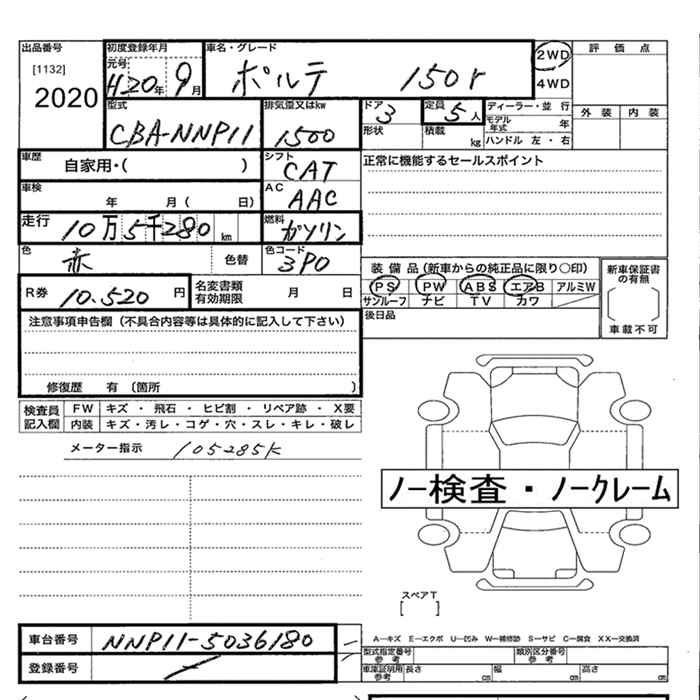 出品番号 初度登録年月 車名・グレード 2WD 評価点
[1132] 元号 H20年 9月 ポルテ 150r 4WD
2020 外装 内装
型式 排気量又はkw ドア 3 定員 5人 ディーラー・並行
CBA-NNP11 1500 形状 積載 kg モデル年式 年
ハンドル 左・右
車歴 自家用・( ) シフト CAT 正常に機能するセールスポイント
車検 年 月( 日) AC AAC
走行 10万5千280km 燃料 ガソリン
色 赤 色替 色コード 3P0
装備品(新車からの純正品に限り○印) 新車保証書の有無
R券 10.520円 名変書類有効期限 月 日 PS PW ABS エアB アルミW
サンルーフ ナビ TV カワ
後日品 車載不可
注意事項申告欄(不具合内容等は具体的に記入して下さい)
修復歴 有(箇所 )
検査員記入欄 FW キズ・飛石・ヒビ割・リペア跡・X要
内装 キズ・汚レ・コゲ・穴・スレ・キレ・破レ
メーター指示 105285K
ノー検査・ノークレーム
スペアT
[ ]
車台番号 NNP11-5036180 A―キズ E―エクボ U―凹み W―補修跡 S―サビ C―腐食 XX―交換済
登録番号 型式指定番号 参考 類別区分番号 参考
車庫証明用 参考 長さ cm 幅 cm 高さ cm